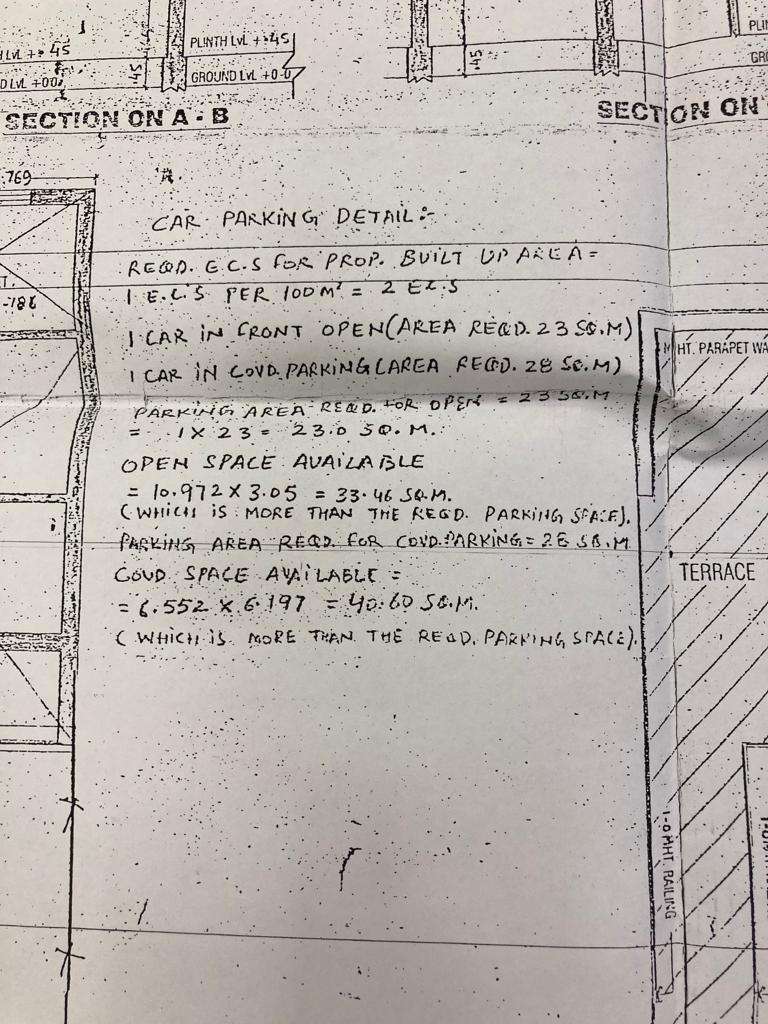 PLINTH LVL +.45
GROUND LVL +0.0
.45
.45
SECTION ON A - B
SECTION ON
.769
CAR PARKING DETAIL :-
REQD. E.C.S FOR PROP. BUILT UP AREA =
1 E.C.S PER 100 M² = 2 E.C.S
1 CAR IN FRONT OPEN (AREA REQD. 23 SQ.M)
1 CAR IN COVD. PARKING (AREA REQD. 28 SQ.M)
PARKING AREA REQD. FOR OPEN = 23 SQ.M
= 1 X 23 = 23.0 SQ. M.
OPEN SPACE AVAILABLE
= 10.972 X 3.05 = 33.46 SQ.M.
(WHICH IS MORE THAN THE REQD. PARKING SPACE).
PARKING AREA REQD. FOR COVD. PARKING = 28 SQ.M
COVD SPACE AVAILABLE =
= 6.552 X 6.197 = 40.60 SQ.M.
(WHICH IS MORE THAN THE REQD. PARKING SPACE).
HT. PARAPET WA
TERRACE
1-0 M HT. RAILING